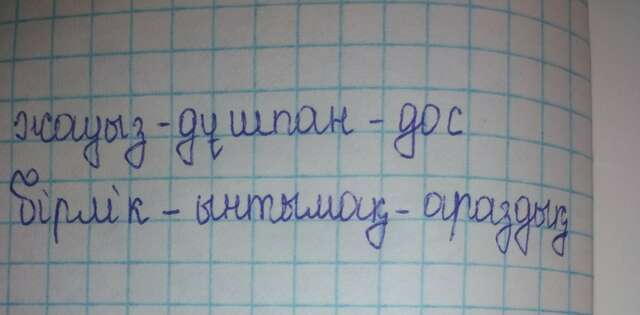 жауыз - дұшпан - дос
бірлік - ынтымақ - араздық